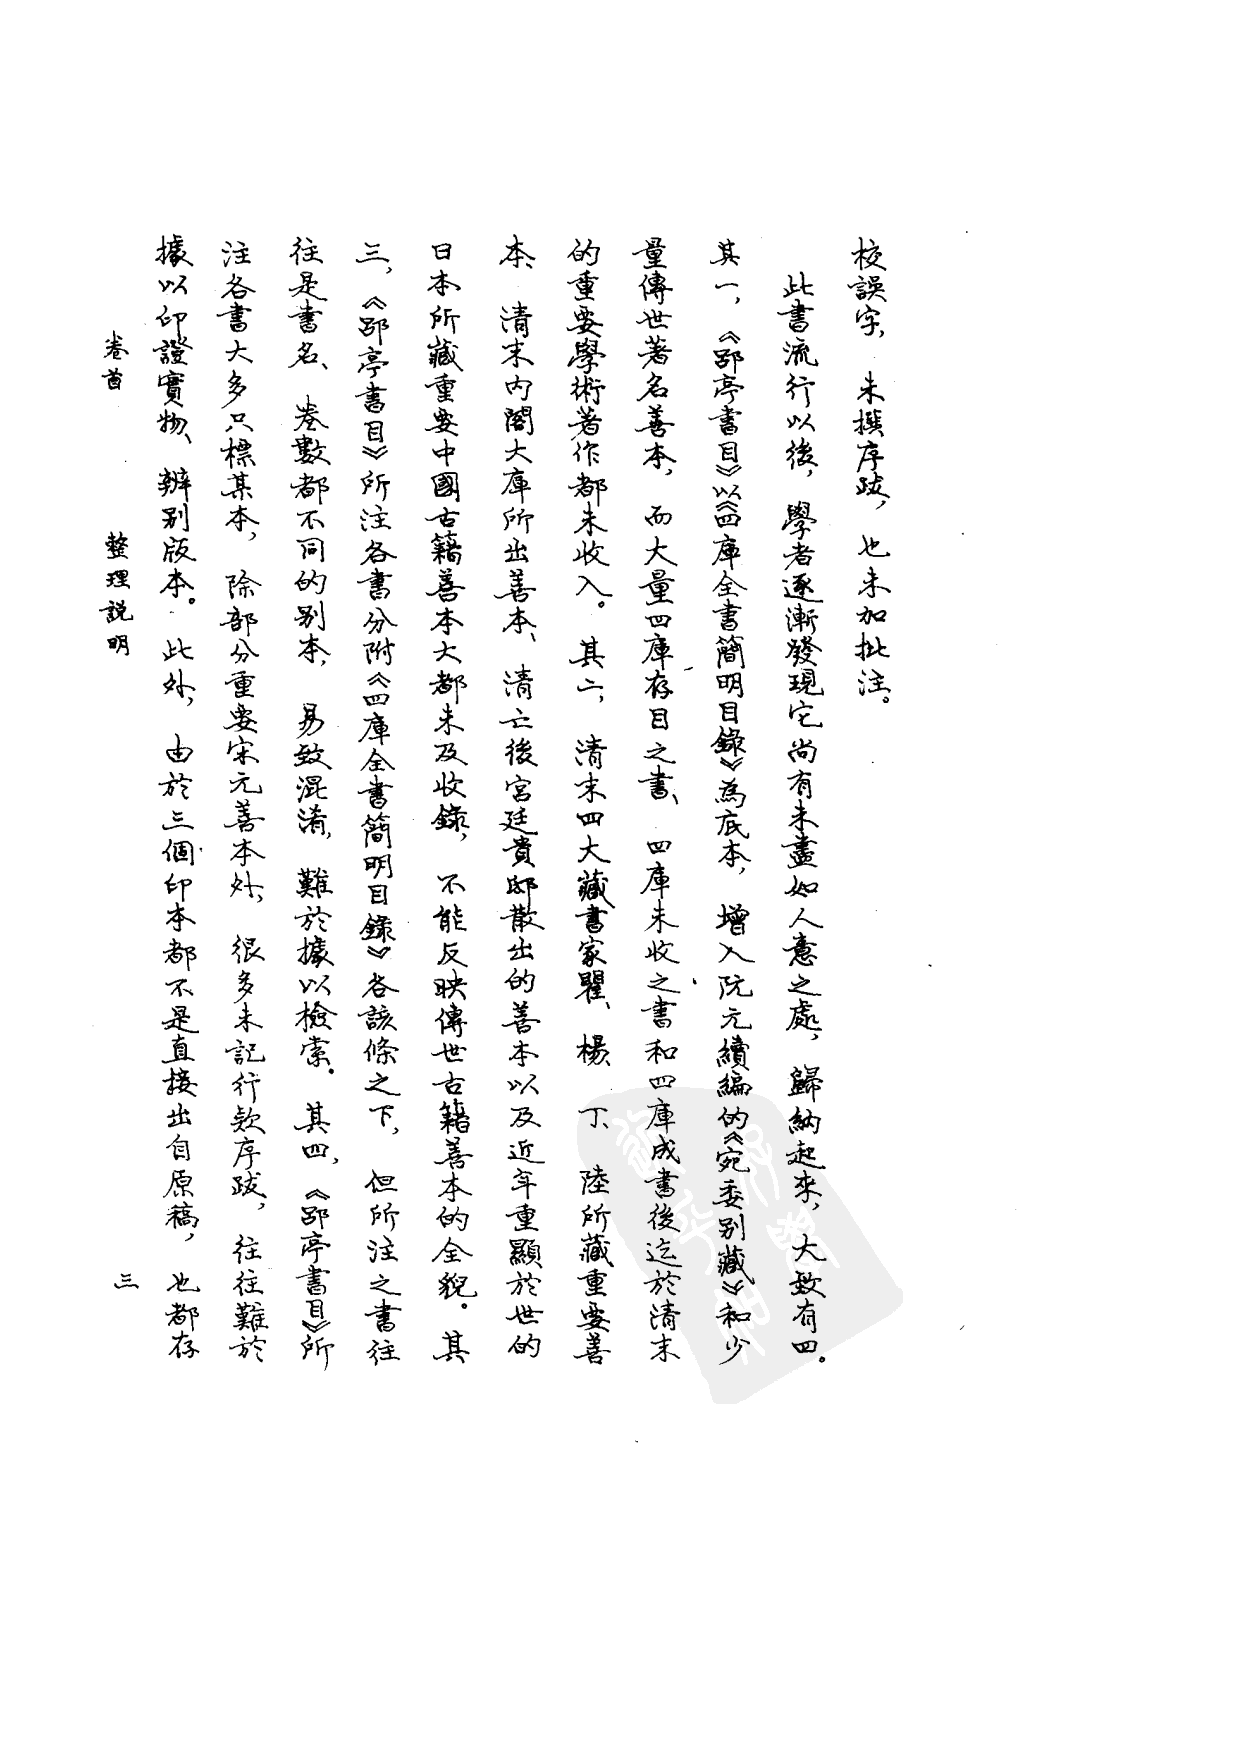 校誤字，未撰序跋，也未加批注。
此書流行以後，學者逐漸發現它尚有未盡如人意之處，歸納起來，大致有四。
其一，《郘亭書目》以《四庫全書簡明目錄》為底本，增入阮元續編的《宛委别藏》和少
量傳世著名善本，而大量四庫存目之書、四庫未收之書和四庫成書後迄於清末
的重要學術著作都未收入。其二，清末四大藏書家瞿、楊、丁、陸所藏重要善
本、清末内閣大庫所出善本、清亡後宮廷貴邸散出的善本以及近年重顯於世的
日本所藏重要中國古籍善本大都未及收錄，不能反映傳世古籍善本的全貌。其
三，《郘亭書目》所注各書分附《四庫全書簡明目錄》各該條之下，但所注之書往
往是書名、卷數都不同的别本，易致混淆，難於據以檢索。其四，《郘亭書目》所
注各書大多只標某本，除部分重要宋元善本外，很多未記行款序跋，往往難於
據以印證實物、辨别版本。此外，由於三個印本都不是直接出自原稿，也都存
卷首 整理説明 三